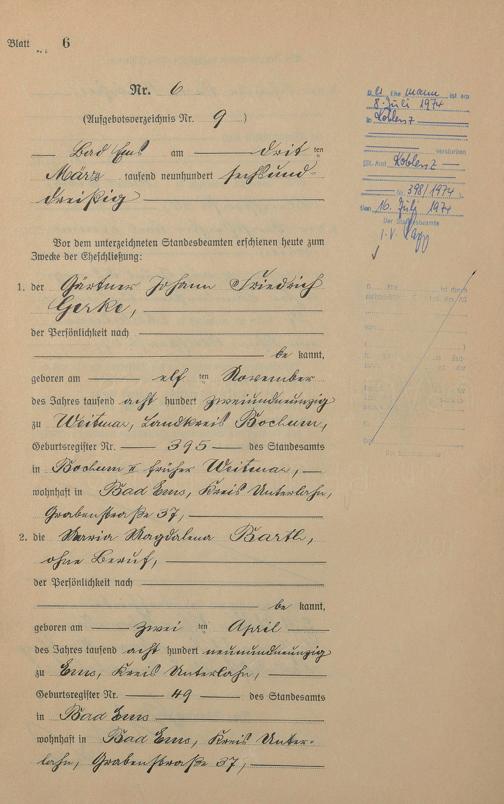 Blatt 6
Nr. 6
(Aufgebotsverzeichnis Nr. 9)
Bad Ems am drit ten
März tausend neunhundert sechsund-
dreißig
Vor dem unterzeichneten Standesbeamten erschienen heute zum
Zwecke der Eheschließung:
1. der Gärtner Johann Friedrich
Gerke,
der Persönlichkeit nach
be kannt,
geboren am elf ten November
des Jahres tausend acht hundert zweiundneunzig
zu Weitmar, Landkreis Bochum,
Geburtsregister Nr. 395 des Standesamts
in Bochum früher Weitmar,
wohnhaft in Bad Ems, Kreis Unterlahn,
Grabenstraße 37,
2. die Maria Magdalena Bartl,
ohne Beruf,
der Persönlichkeit nach
be kannt,
geboren am zwei ten April
des Jahres tausend acht hundert neunundneunzig
zu Ems, Kreis Unterlahn,
Geburtsregister Nr. 49 des Standesamts
in Bad Ems
wohnhaft in Bad Ems, Kreis Unter-
lahn, Grabenstraße 37,
Ehe mann ist am
8. Juli 1974
in Koblenz
verstorben
Koblenz
Nr. 398/1974
den 16. Juli 1974
Der Standesbeamte
I.V.